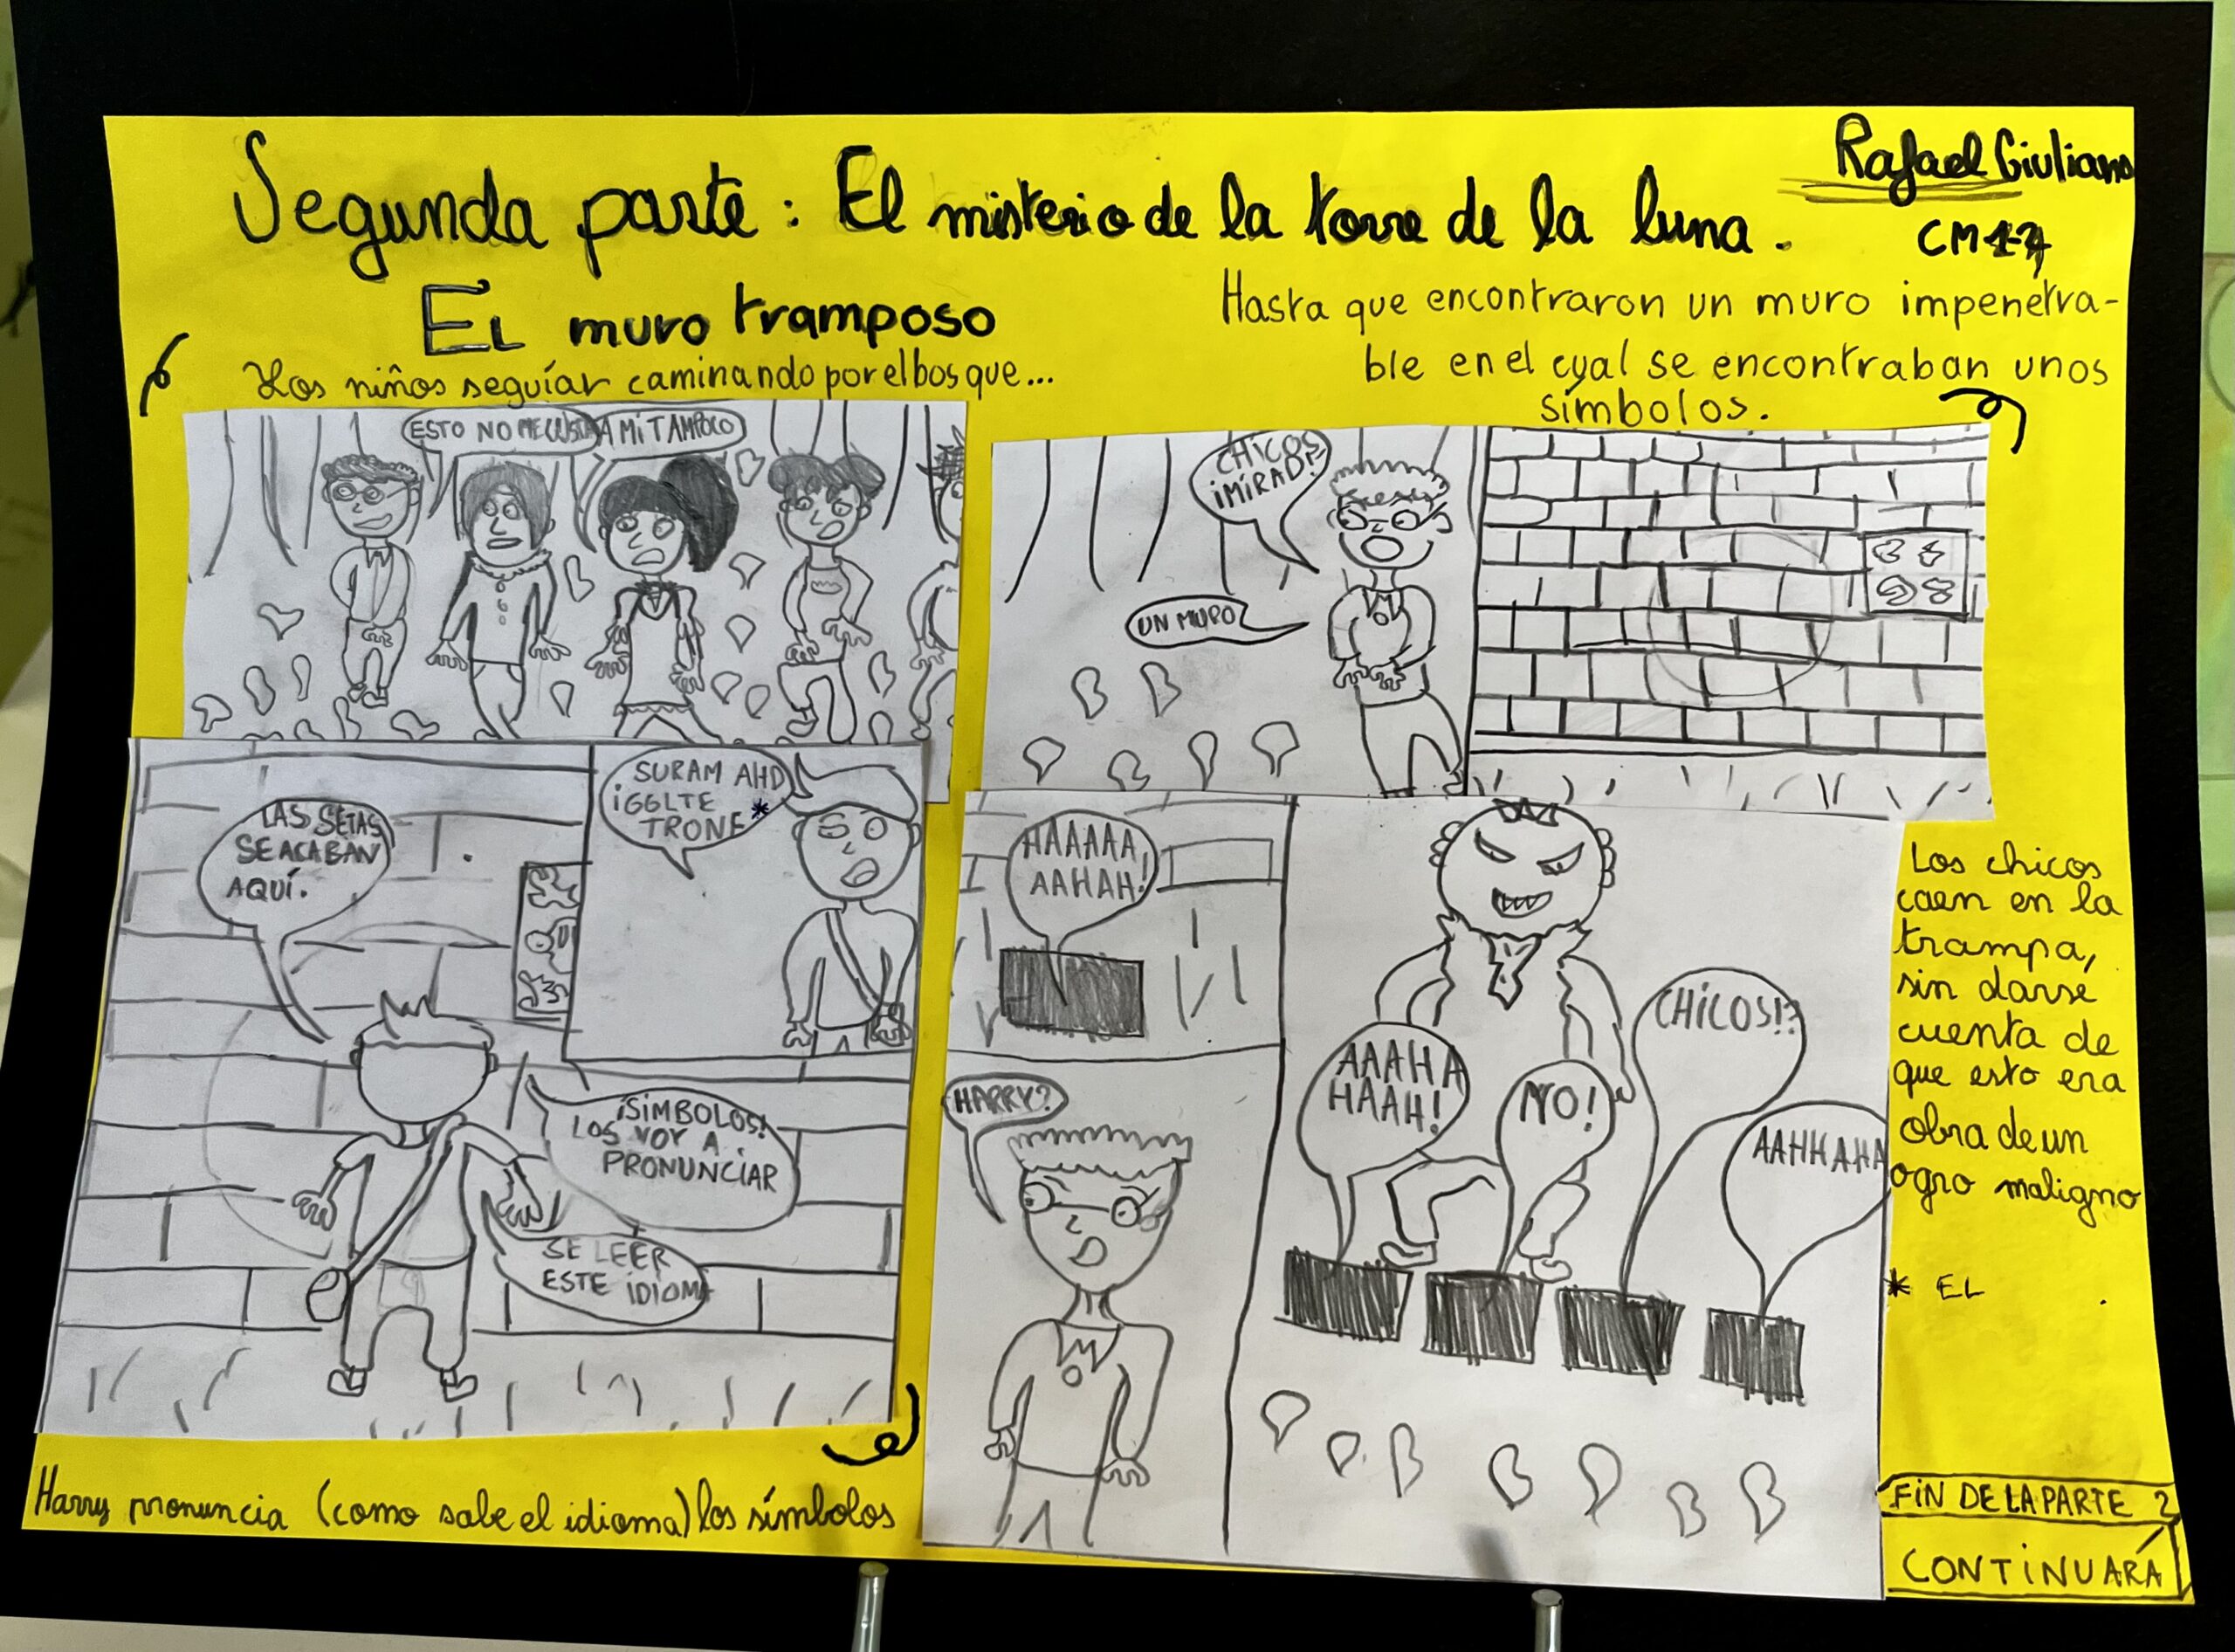 Segunda parte : El misterio de la torre de la luna.
Rafael Giuliano
EL muro tramposo
Los niños seguían caminando por el bosque...
ESTO NO ME GUSTA
A MÍ TAMPOCO
Hasta que encontraron un muro impenetra-
ble en el cual se encontraban unos
símbolos.
CHICOS
¡MIRAD!
UN MURO
LAS SETAS
SE ACABAN
AQUÍ.
SURAM AHD
¡GGLTE
TRONE*
¡SIMBOLOS!
LOS VOY A
PRONUNCIAR
SE LEER
ESTE IDIOMA
Harry pronuncia (como sabe el idioma) los símbolos
HAAAAA
AAHAH!
HARRY?
AAAHA
HAAH!
NO!
CHICOS!?
AAHHAHA
Los chicos
caen en la
trampa,
sin darse
cuenta de
que esto era
obra de un
ogro maligno
* EL
FIN DE LA PARTE 2
CONTINUARÁ